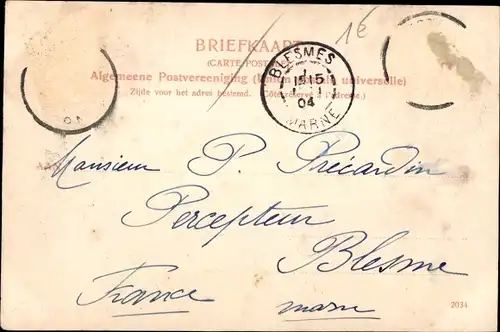 1€
BRIEFKAART
(CARTE POSTALE)
Algemeene Postvereeniging (Union postale universelle)
Zijde voor het adres bestemd. (Côté réservé à l'adresse.)
BLESMES
15
1
04
MARNE
Monsieur P. Précardin
Percepteur
Blesme
France
marne
2034